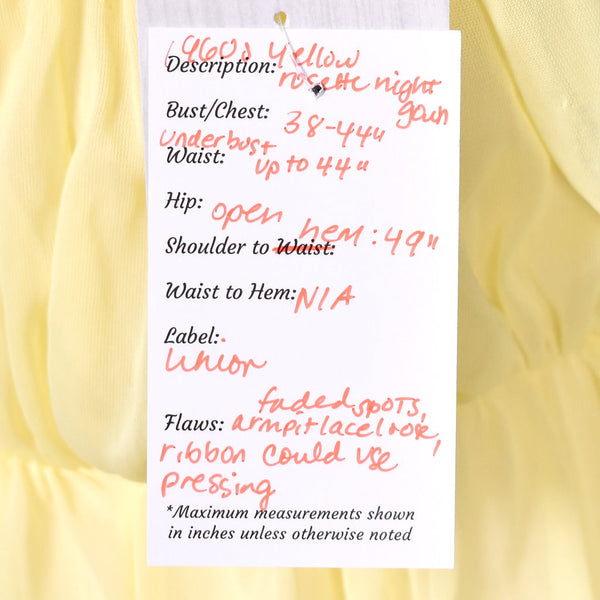 1960s yellow
Description: rosette night
gown
Bust/Chest: 38-44"
underbust
Waist: up to 44"
Hip: open
hem: 49"
Shoulder to Waist:
Waist to Hem: N/A
Label:
Union
faded spots,
Flaws: armpit lace
ribbon could use
pressing
*Maximum measurements shown
in inches unless otherwise noted